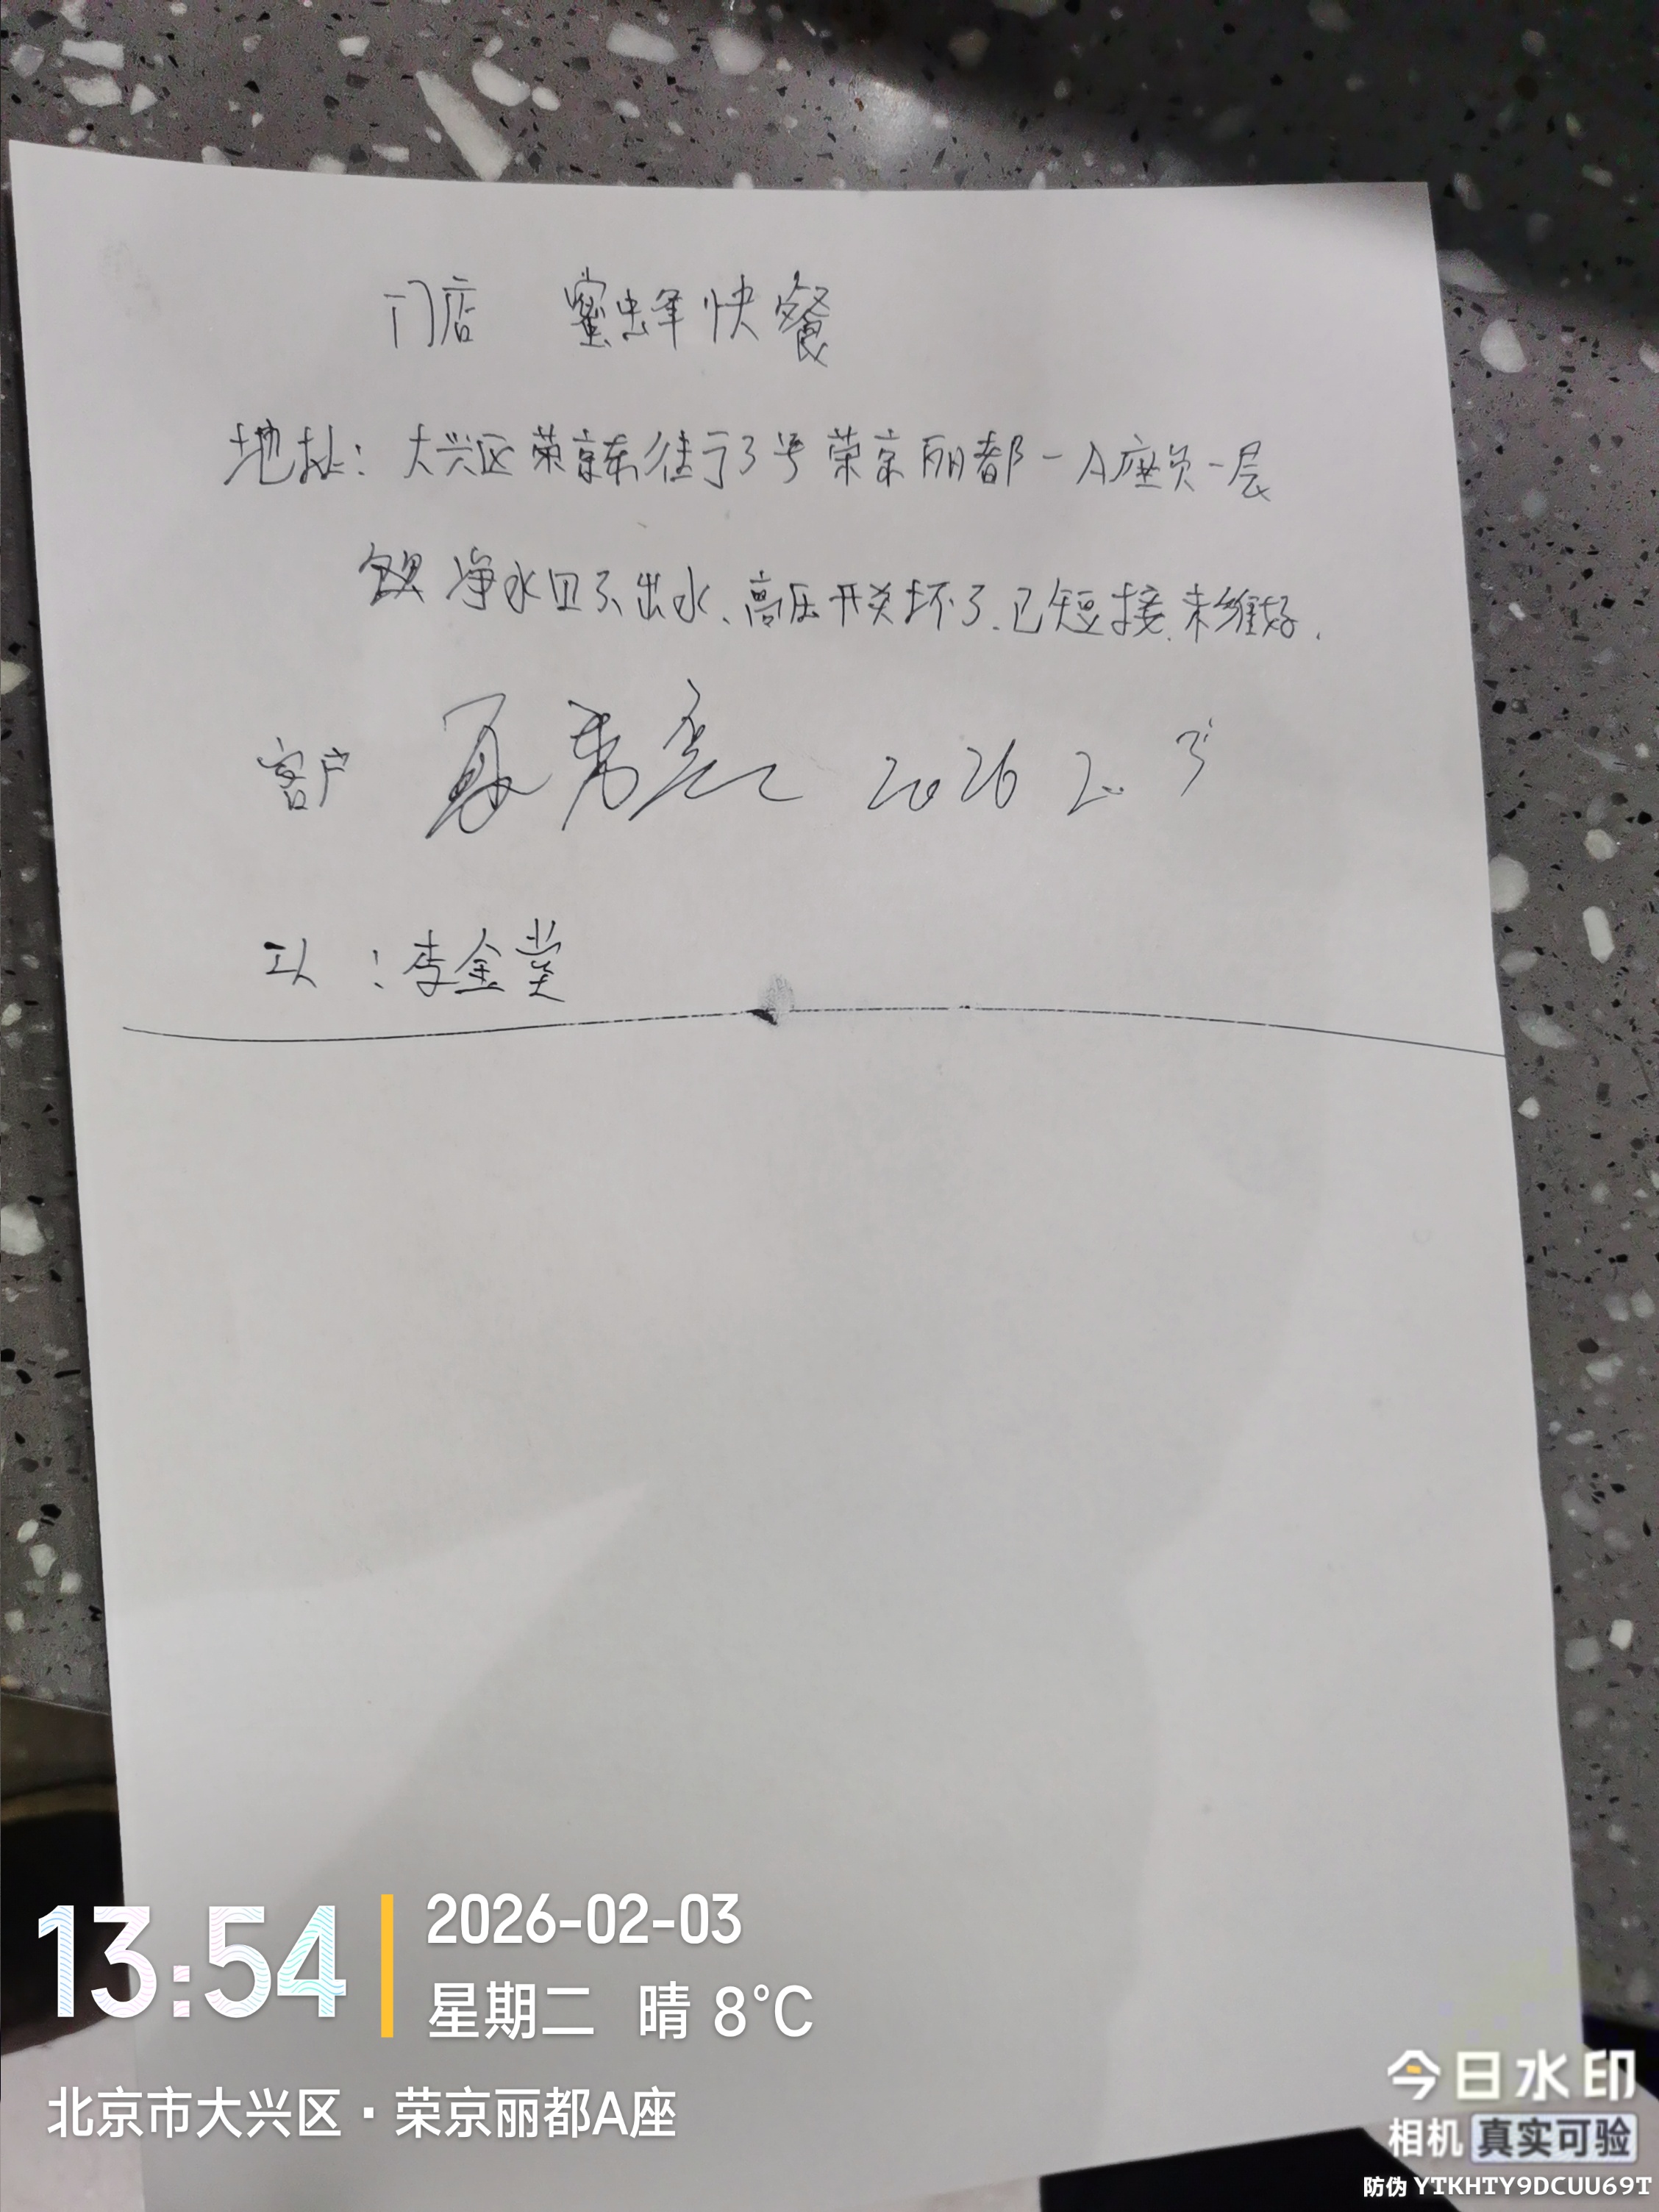 门店 蜜蜂快餐
地址：大兴区荣京东街3号荣京丽都一A座负一层
净水口不出水、高压开关坏了.已短接.未维好.
客户 2026 2. 3
工人：李金堂
13:54
2026-02-03
星期二 晴 8℃
北京市大兴区·荣京丽都A座
今日水印
相机 真实可验
防伪 YTKHTY9DCUU69T